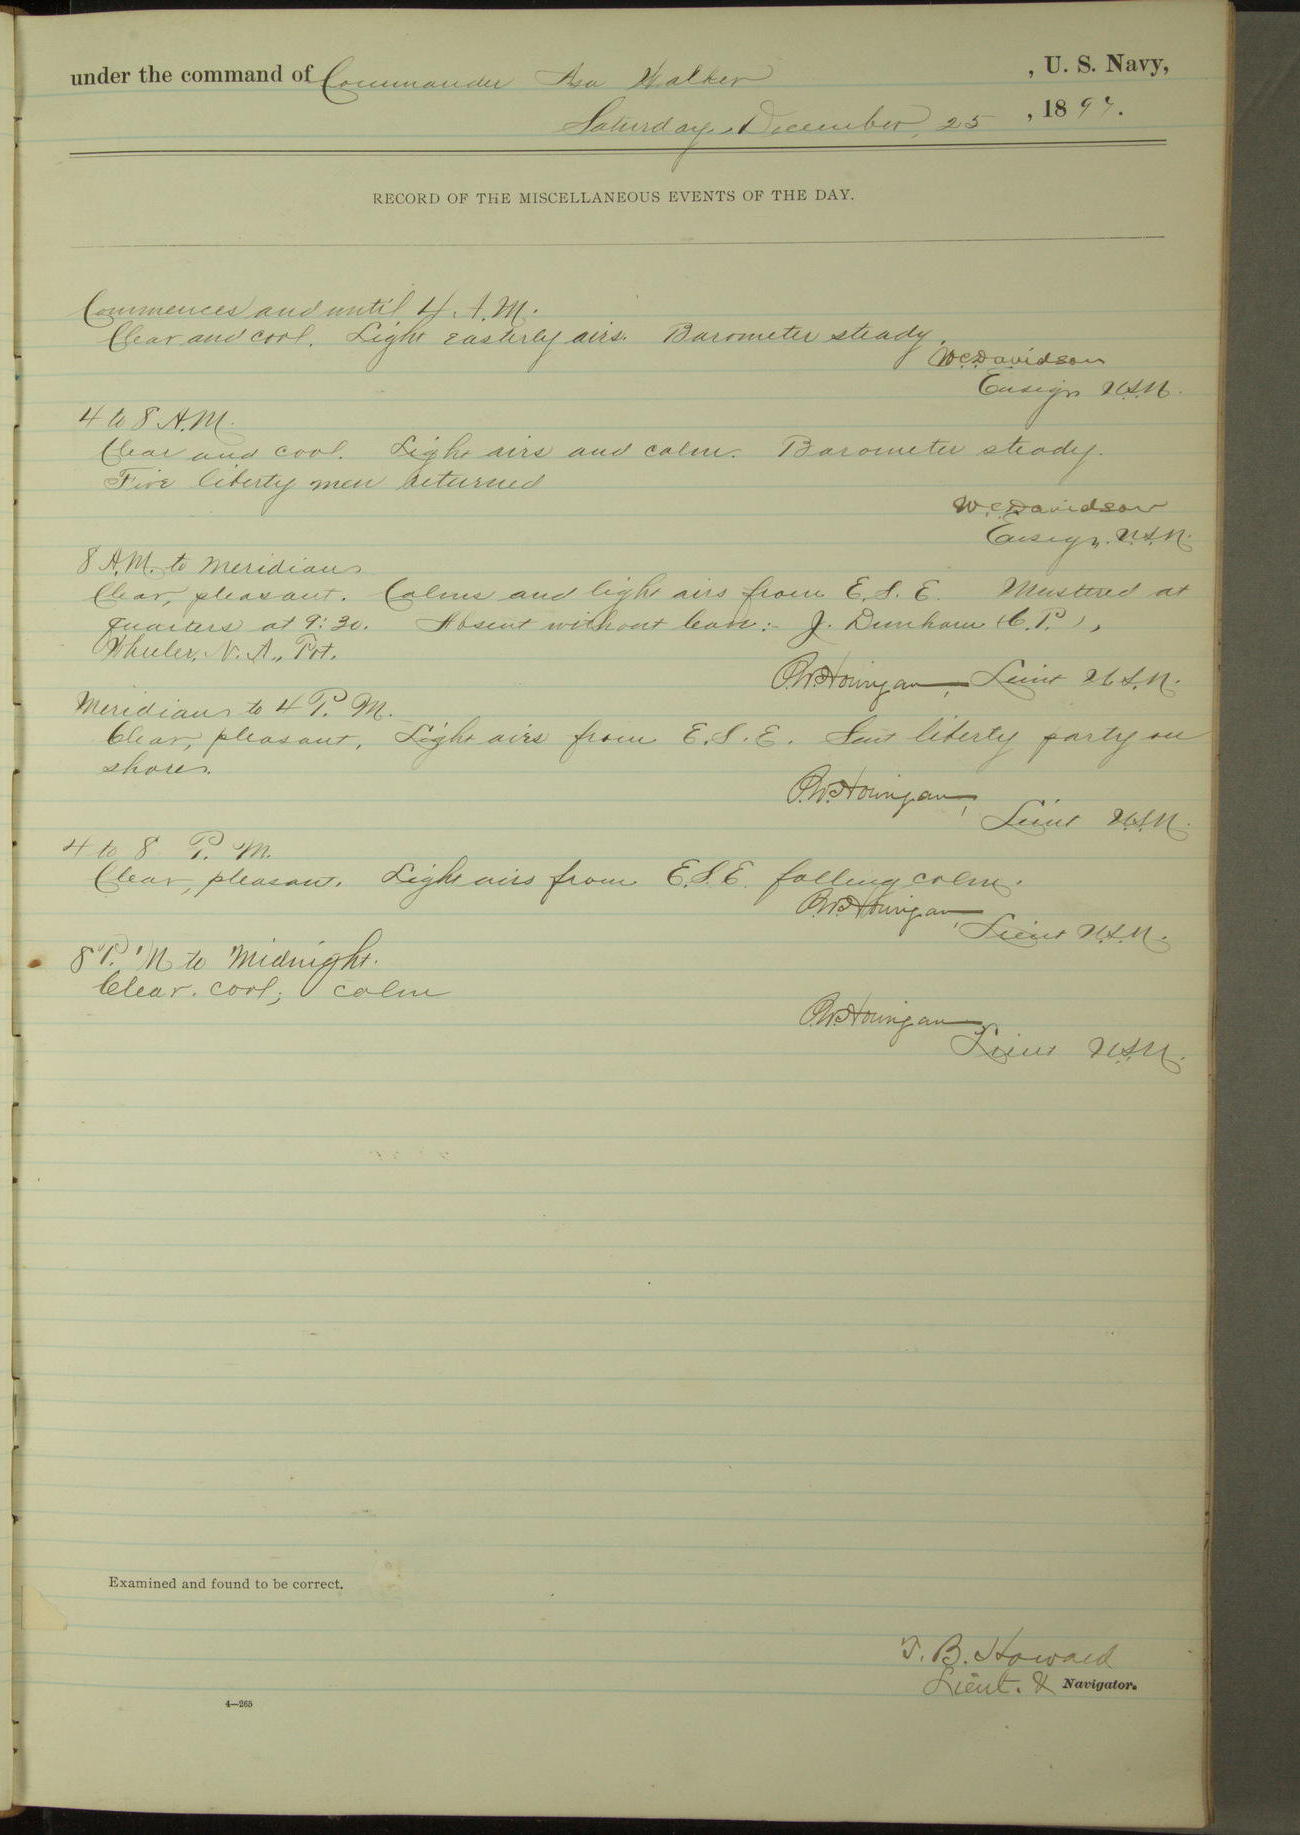 under the command of Commander Asa Walker , U. S. Navy,
Saturday, December, 25 , 1897.
RECORD OF THE MISCELLANEOUS EVENTS OF THE DAY.
Commences and until 4 A.M.
Clear and cool. Light easterly airs. Barometer steady.
W.C. Davidson
Ensign U.S.N.
4 to 8 A.M.
Clear and cool. Light airs and calm. Barometer steady.
Five liberty men returned
W.C. Davidson
Ensign. U.S.N.
8 A.M. to meridian
Clear, pleasant. Calms and light airs from E.S.E. Mustered at
quarters at 9:30. Absent without leave:- J. Dunham (C.P.),
Wheeler, N.A., Pvt.
P.W. Hourigan, Lieut U.S.N.
Meridian to 4 P.M.
Clear, pleasant. Light airs from E.S.E. Sent liberty party on
shore.
P.W. Hourigan, Lieut U.S.N.
4 to 8 P.M.
Clear, pleasant. Light airs from E.S.E. falling calm.
P.W. Hourigan, Lieut U.S.N.
8 P.M to Midnight.
Clear. cool; calm
P.W. Hourigan
Lieut U.S.N.
Examined and found to be correct.
T. B. Howard
Lieut. & Navigator.
4—265